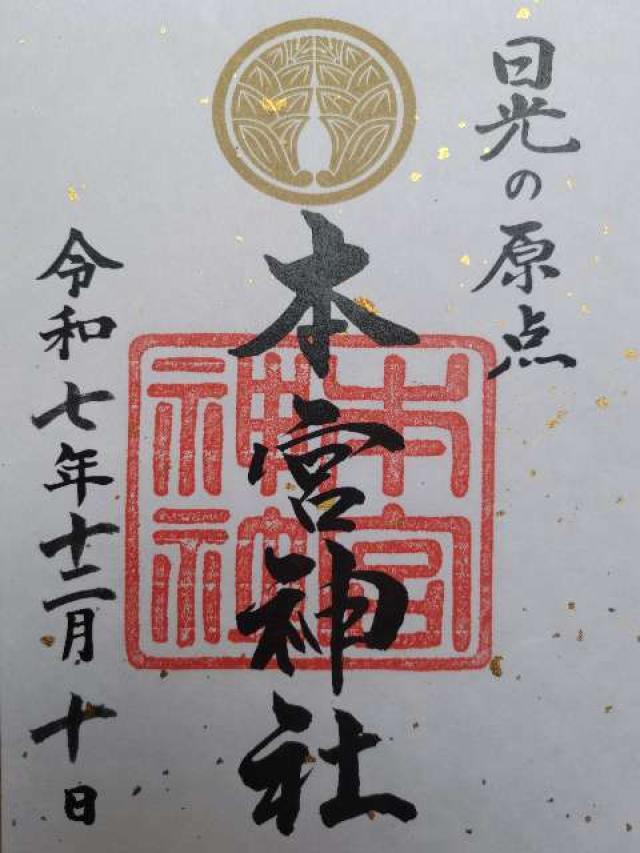 日光の原点
本宮神社
本宮
神社
令和七年十二月十日